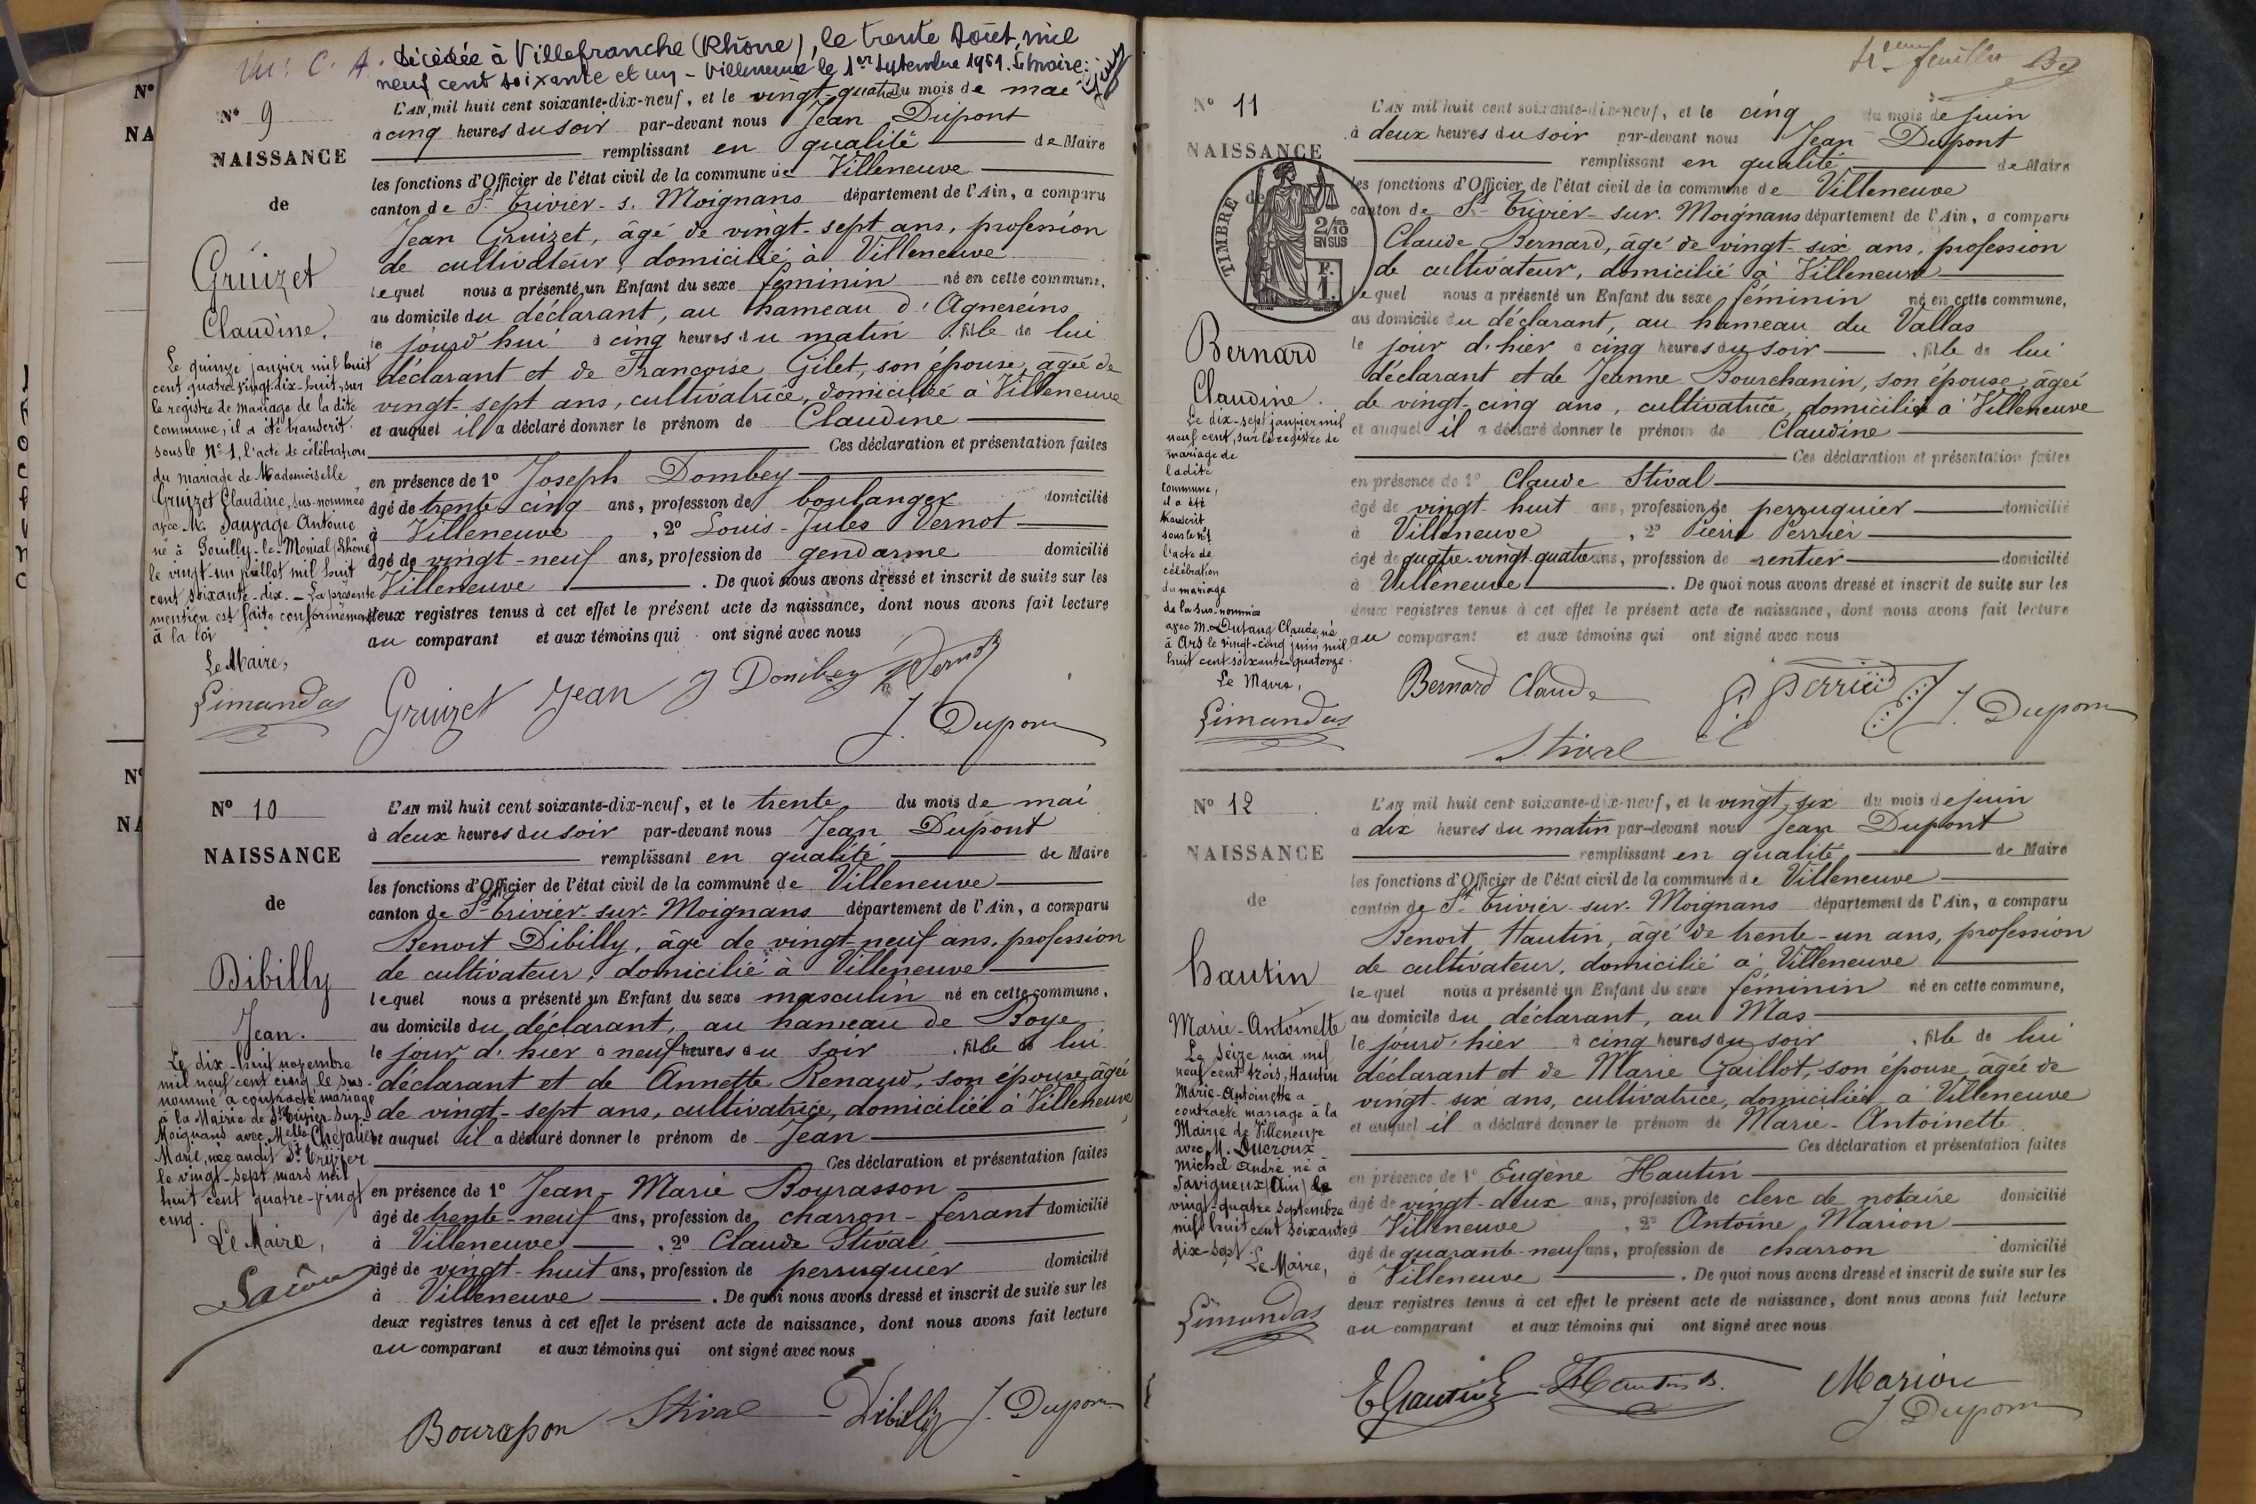 Vu: C. A. décédée à Villefranche (Rhône), le trente Août, mil
neuf cent soixante et un - Villeneuve le 1er Septembre 1961. Le Maire:
N° 9
NAISSANCE
de
Gruizet
Claudine.
Le quinze janvier mil huit
cent quatre vingt dix-huit, sur
le registre de mariage de la dite
commune, il a été transcrit
sous le N° 1, l'acte de célébration
du mariage de Mademoiselle
Gruizet Claudine, sus-nommée
avec M. Sauzage Antoine
né à Pouilly-le-Monial (Rhône)
le vingt-un juillet mil huit
cent soixante-dix. - La présente
mention est faite conformément
à la loi
Le Maire,
Limandas
L'AN mil huit cent soixante-dix-neuf, et le vingt-quatre du mois de mai
à cinq heures du soir par-devant nous Jean Dupont
remplissant en qualité de Maire
les fonctions d'Officier de l'état civil de la commune de Villeneuve
canton de St Trivier-s. Moignans département de l'Ain, a comparu
Jean Gruizet, âgé de vingt-sept ans, profession
de cultivateur, domicilié à Villeneuve
lequel nous a présenté un Enfant du sexe féminin né en cette commune,
au domicile du déclarant, au hameau d'Agnereins
le jourd'hui à cinq heures du matin , fille de lui
déclarant et de Françoise Gilet, son épouse, âgée de
vingt-sept ans, cultivatrice, domiciliée à Villeneuve
et auquel il a déclaré donner le prénom de Claudine
Ces déclaration et présentation faites
en présence de 1° Joseph Dombey
âgé de trente cinq ans, profession de boulanger domicilié
à Villeneuve , 2° Louis-Jules Vernot
âgé de vingt-neuf ans, profession de gendarme domicilié
Villeneuve . De quoi nous avons dressé et inscrit de suite sur les
deux registres tenus à cet effet le présent acte de naissance, dont nous avons fait lecture
au comparant et aux témoins qui ont signé avec nous
Gruizet Jean J Dombey Vernot
J. Dupont
N° 10
NAISSANCE
de
Dibilly
Jean.
Le dix-huit novembre
mil neuf cent cinq le sus-
nommé a contracté mariage
à la Mairie de St Trivier sur
Moignans avec Melle Chevalier
Marie, née audit St Trivier
le vingt-sept mars mil
huit cent quatre-vingt
cinq.
Le Maire,
L'AN mil huit cent soixante-dix-neuf, et le trente du mois de mai
à deux heures du soir par-devant nous Jean Dupont
remplissant en qualité de Maire
les fonctions d'Officier de l'état civil de la commune de Villeneuve
canton de St Trivier-sur-Moignans département de l'Ain, a comparu
Benoit Dibilly, âgé de vingt-neuf ans, profession
de cultivateur, domicilié à Villeneuve
lequel nous a présenté un Enfant du sexe masculin né en cette commune,
au domicile du déclarant, au hameau de Boye
le jour d'hier à neuf heures du soir , fils de lui
déclarant et de Annette Renaud, son épouse, âgée
de vingt-sept ans, cultivatrice, domiciliée à Villeneuve
et auquel il a déclaré donner le prénom de Jean
Ces déclaration et présentation faites
en présence de 1° Jean-Marie Bourasson
âgé de trente-neuf ans, profession de charron-ferrant domicilié
à Villeneuve , 2° Claude Stival
âgé de vingt-huit ans, profession de perruquier domicilié
à Villeneuve . De quoi nous avons dressé et inscrit de suite sur les
deux registres tenus à cet effet le présent acte de naissance, dont nous avons fait lecture
au comparant et aux témoins qui ont signé avec nous
Bourasson Stival Dibilly J. Dupont
feuillet
N° 11
NAISSANCE
de
TIMBRE
2/10
EN SUS
F.
1.
Bernard
Claudine.
Le dix-sept janvier mil
neuf cent, sur le registre de
mariage de
ladite
commune,
il a été
transcrit
sous le N° 1
l'acte de
célébration
du mariage
de la sus-nommée
avec M. Dutang Claude, né
à Ars le vingt-cinq juin mil
huit cent soixante-quatorze.
Le Maire,
Limandas
L'AN mil huit cent soixante-dix-neuf, et le cinq du mois de juin
à deux heures du soir par-devant nous Jean Dupont
remplissant en qualité de Maire
les fonctions d'Officier de l'état civil de la commune de Villeneuve
canton de St Trivier-sur-Moignans département de l'Ain, a comparu
Claude Bernard, âgé de vingt-six ans, profession
de cultivateur, domicilié à Villeneuve
lequel nous a présenté un Enfant du sexe féminin né en cette commune,
au domicile du déclarant, au hameau du Vallas
le jour d'hier à cinq heures du soir , fille de lui
déclarant et de Jeanne Bourchanin, son épouse, âgée
de vingt-cinq ans, cultivatrice, domiciliée à Villeneuve
et auquel il a déclaré donner le prénom de Claudine
Ces déclaration et présentation faites
en présence de 1° Claude Stival
âgé de vingt-huit ans, profession de perruquier domicilié
à Villeneuve , 2° Pierre Perrier
âgé de quatre-vingt-quatre ans, profession de rentier domicilié
à Villeneuve . De quoi nous avons dressé et inscrit de suite sur les
deux registres tenus à cet effet le présent acte de naissance, dont nous avons fait lecture
au comparant et aux témoins qui ont signé avec nous
Bernard Claude P. Perrier J. Dupont
Stival
N° 12
NAISSANCE
de
Hautin
Marie-Antoinette
Le seize mai mil
neuf cent trois, Hautin
Marie-Antoinette a
contracté mariage à la
Mairie de Villeneuve
avec M. Ducroux
Michel André né à
Savigneux (Ain) le
vingt-quatre septembre
mil huit cent soixante
dix-sept.
Le Maire,
Limandas
L'AN mil huit cent soixante-dix-neuf, et le vingt-six du mois de juin
à dix heures du matin par-devant nous Jean Dupont
remplissant en qualité de Maire
les fonctions d'Officier de l'état civil de la commune de Villeneuve
canton de St Trivier-sur-Moignans département de l'Ain, a comparu
Benoit Hautin, âgé de trente-un ans, profession
de cultivateur, domicilié à Villeneuve
lequel nous a présenté un Enfant du sexe féminin né en cette commune,
au domicile du déclarant, au Mas
le jourd'hier à cinq heures du soir , fille de lui
déclarant et de Marie Gaillot, son épouse, âgée de
vingt-six ans, cultivatrice, domiciliée à Villeneuve
et auquel il a déclaré donner le prénom de Marie-Antoinette
Ces déclaration et présentation faites
en présence de 1° Eugène Hautin
âgé de vingt-deux ans, profession de clerc de notaire domicilié
à Villeneuve , 2° Antoine Marion
âgé de quarante-neuf ans, profession de charron domicilié
à Villeneuve . De quoi nous avons dressé et inscrit de suite sur les
deux registres tenus à cet effet le présent acte de naissance, dont nous avons fait lecture
au comparant et aux témoins qui ont signé avec nous
E Hautin Hautin B. Marion
J Dupont